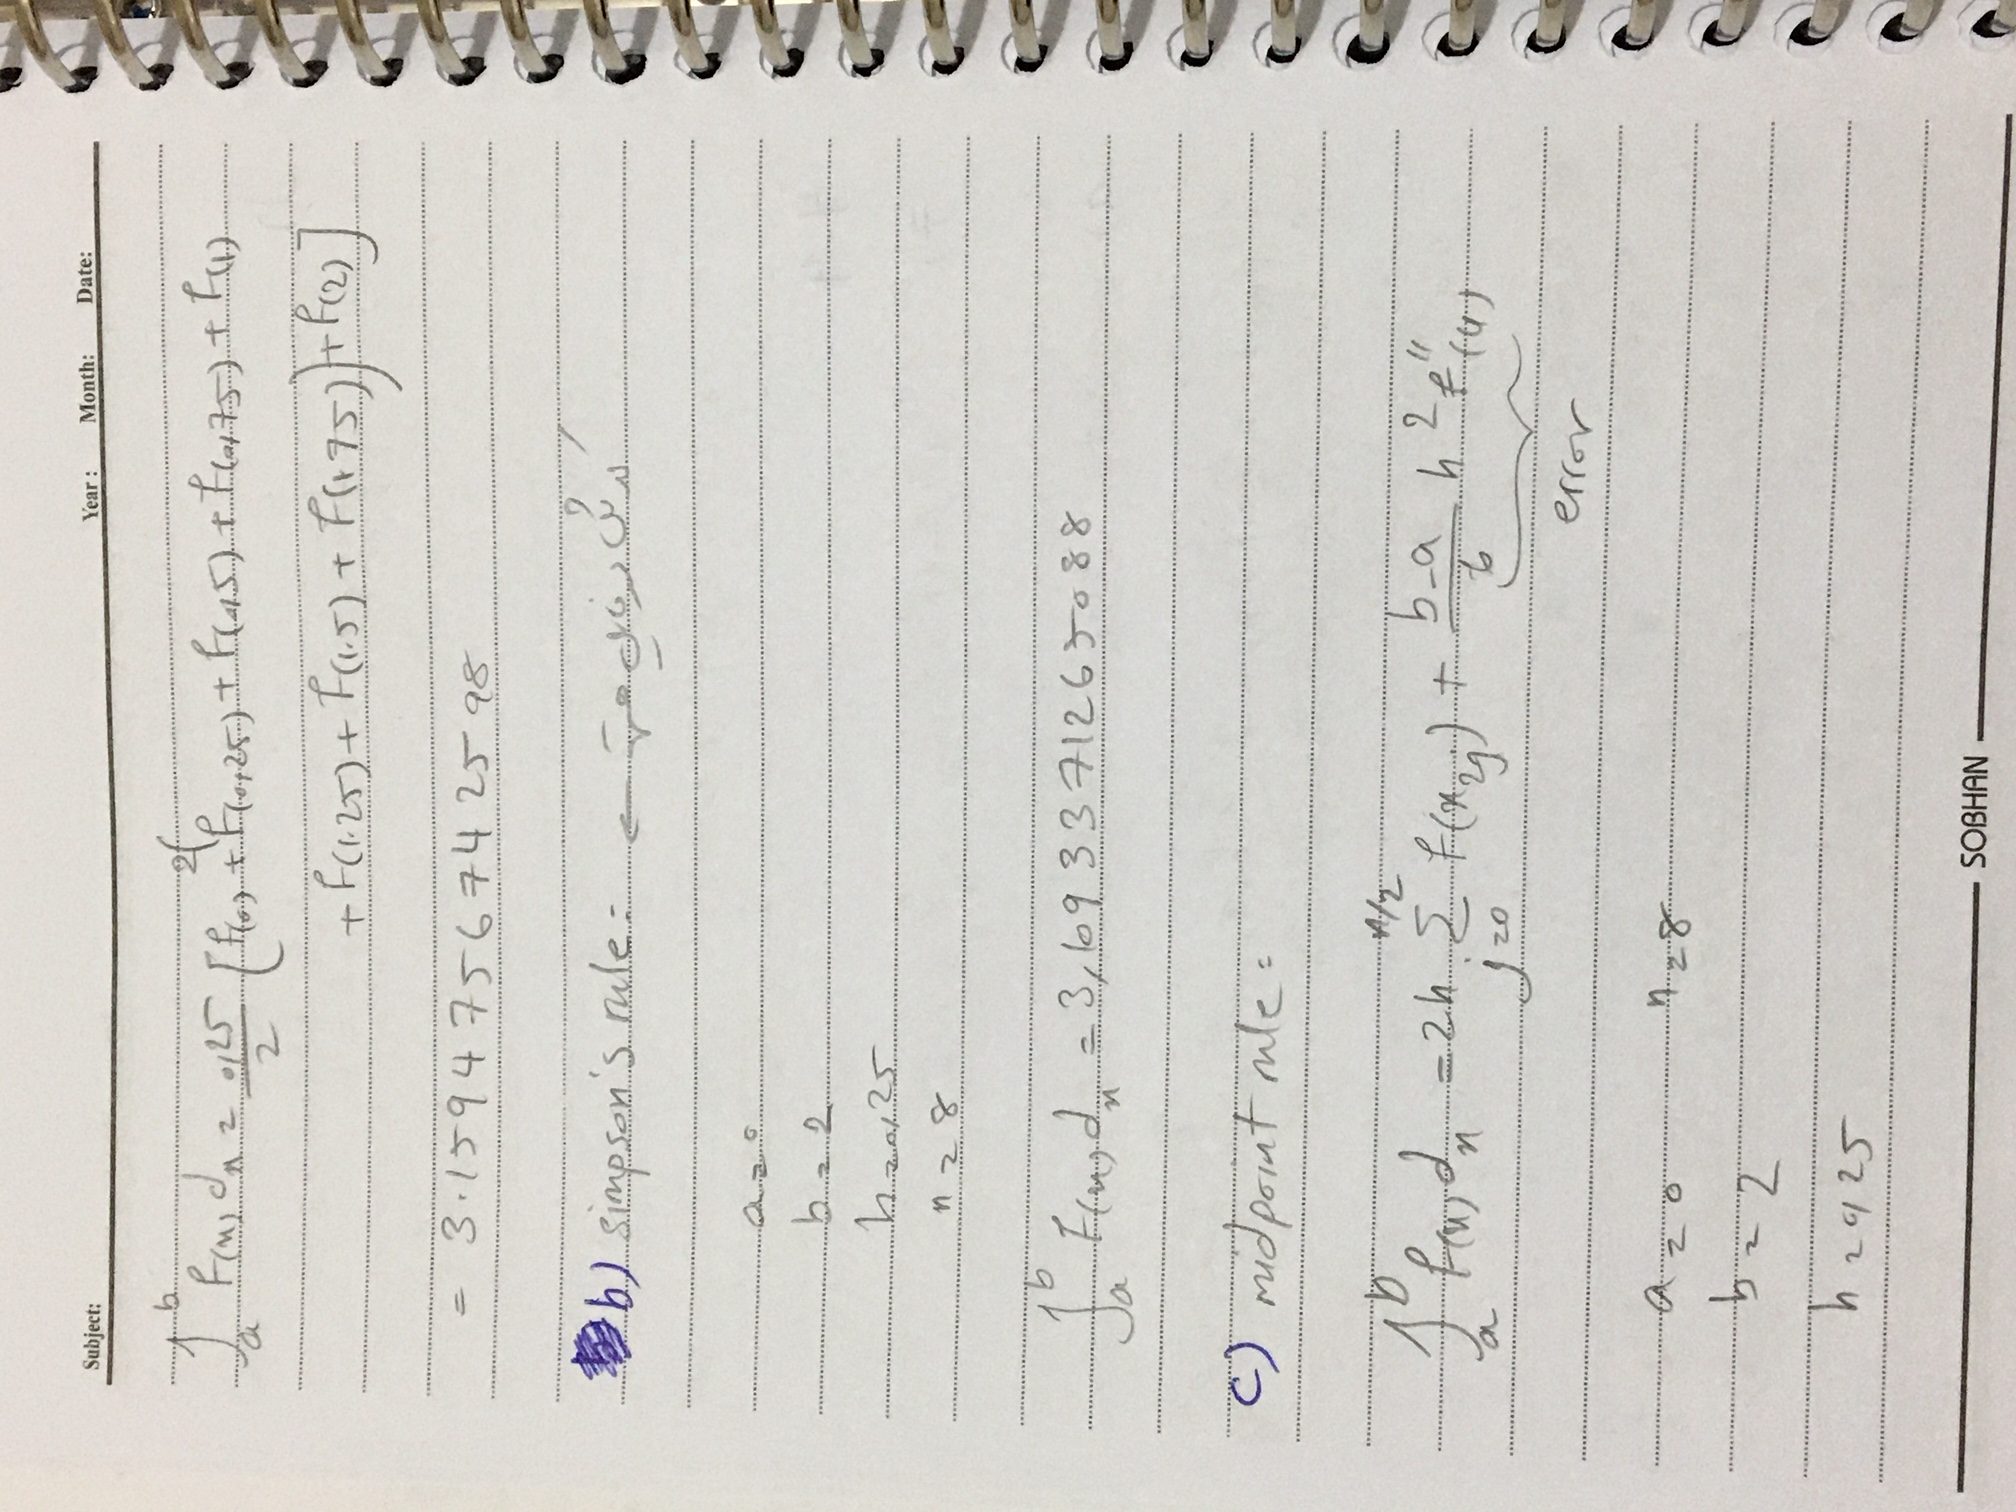 Subject: Year : Month: Date:
∫_a^b f(x) dx = 0,25/2 [f(0) + 2(f(0,25) + f(0,5) + f(0,75) + f(1)
+ f(1.25) + f(1.5) + f(1.75)) + f(2)]
= 3.15947567742598
b) simpson's rule: ← کدش در فایل هست
a = 0
b = 2
h = 0,25
n = 8
∫_a^b f(x) dx = 3,1093371265088
c) midpoint rule:
∫_a^b f(x) dx = 2h Σ_{j=0}^{n/2} f(x_{2j}) + (b-a)/6 h² f''(μ)
error
a = 0 n = 8
b = 2
h = 0,25
SOBHAN